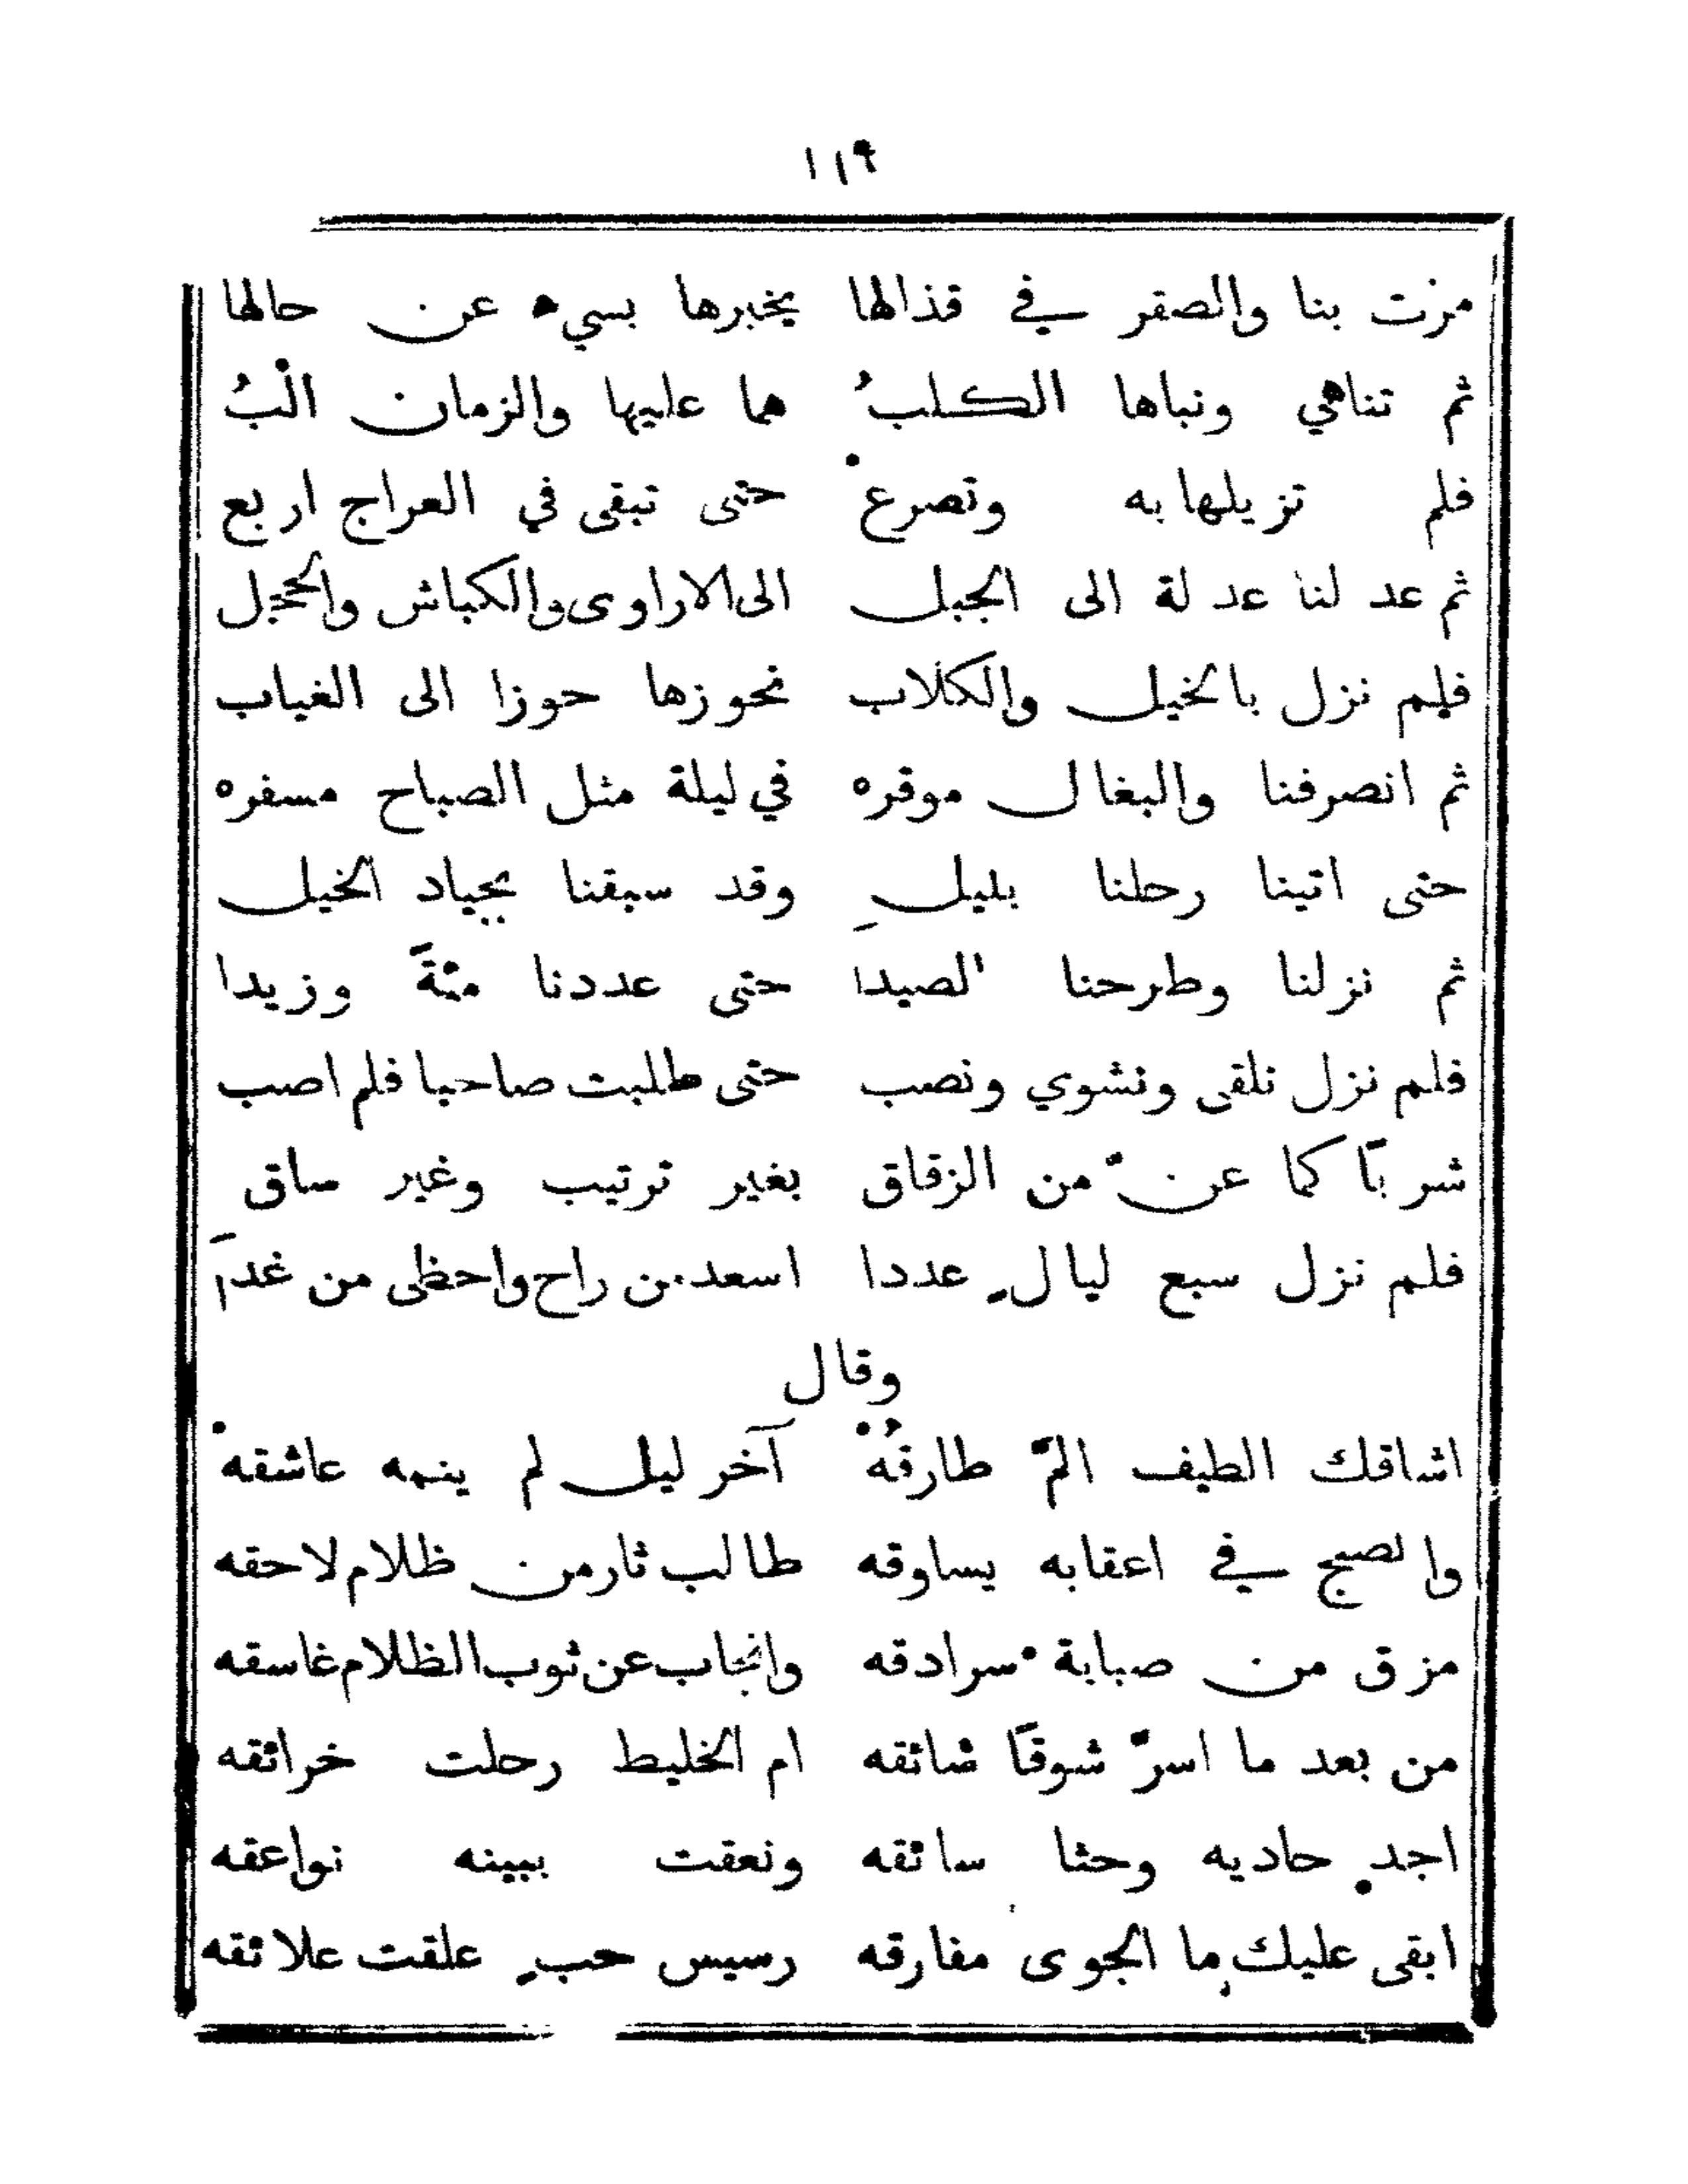 ١١٩
مزت بنا والصقر في قذالها يخبرها بسيء عن حالها
ثم تناهى ونباها الكلبُ هما عليها والزمان الْبُ
فلم تزيلها به وتصرعْ حتى تبقى في العراج اربع
ثم عدلنا عدلة الى الجبل الى الاراوى والكباش والحجل
فلم نزل بالخيل والكلاب نحوزها حوزا الى الغياب
ثم انصرفنا والبغال موقره في ليلة مثل الصباح مسفره
حتى اتينا رحلنا بليلِ وقد سبقنا بجياد الخيل
ثم نزلنا وطرحنا الصيدا حتى عددنا مئةً وزيدا
فلم نزل نلقى ونشوي ونصب حتى طلبت صاحيا فلم اصب
شربًا كما عنّ من الزقاق بغير ترتيب وغير ساق
فلم نزل سبع ليالٍ عددا اسعد من راح واحظى من غدَا
وقال
اشاقك الطيف المّ طارقُهْ آخر ليل لم ينمه عاشقهْ
والصبح في اعقابه يساوقه طالب ثار من ظلام لاحقه
مزق من صبابة سرادقه وانجاب عن ثوب الظلام غاسقه
من بعد ما اسرّ شوقًا شائقه ام الخليط رحلت خرائقه
اجد حاديه وحثا سائقه ونعقت ببينه نواعقه
ابقى عليك ما الجوى مفارقه رسيس حبٍ علقت علائقه